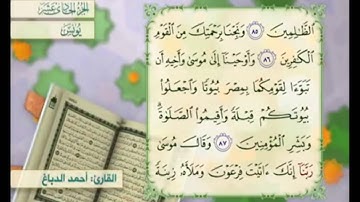 الجزء الحادي عشر
يونس
ٱلظَّـٰلِمِينَ ٨٥ وَنَجِّنَا بِرَحْمَتِكَ مِنَ ٱلْقَوْمِ
ٱلْكَـٰفِرِينَ ٨٦ وَأَوْحَيْنَآ إِلَىٰ مُوسَىٰ وَأَخِيهِ أَن
تَبَوَّءَا لِقَوْمِكُمَا بِمِصْرَ بُيُوتًا وَٱجْعَلُوا۟
بُيُوتَكُمْ قِبْلَةً وَأَقِيمُوا۟ ٱلصَّلَوٰةَ ۗ
وَبَشِّرِ ٱلْمُؤْمِنِينَ ٨٧ وَقَالَ مُوسَىٰ
رَبَّنَآ إِنَّكَ ءَاتَيْتَ فِرْعَوْنَ وَمَلَأَهُۥ زِينَةً
القارئ: أحمد الدباغ